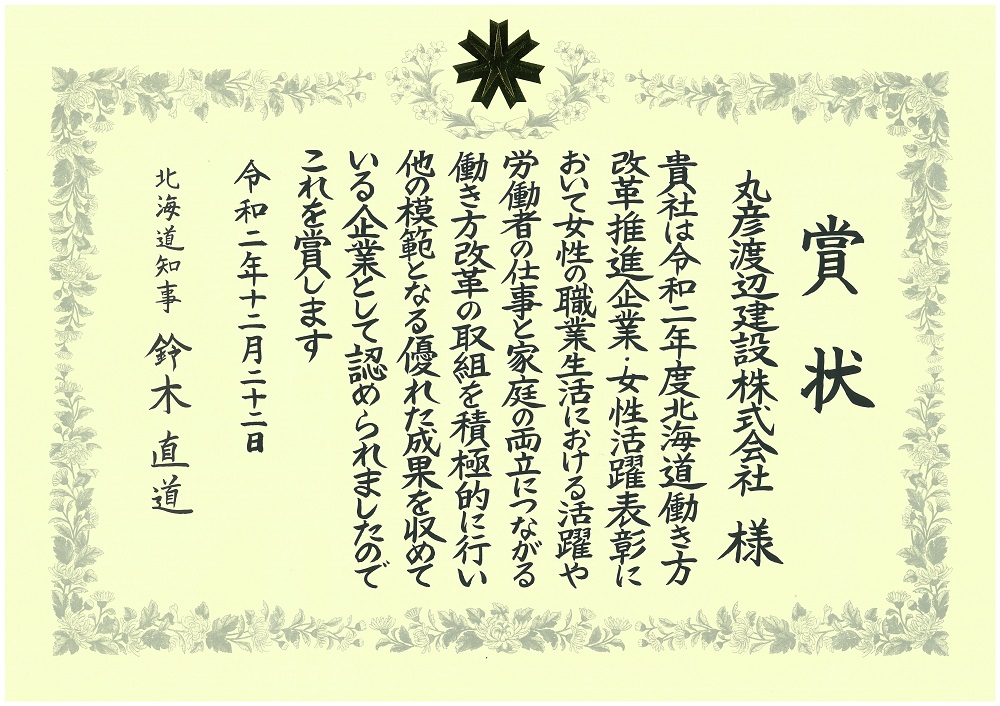 賞状
丸彦渡辺建設株式会社 様
貴社は令和二年度北海道働き方
改革推進企業・女性活躍表彰に
おいて女性の職業生活における活躍や
労働者の仕事と家庭の両立につながる
働き方改革の取組を積極的に行い
他の模範となる優れた成果を収めて
いる企業として認められましたので
これを賞します
令和二年十二月二十二日
北海道知事 鈴木直道